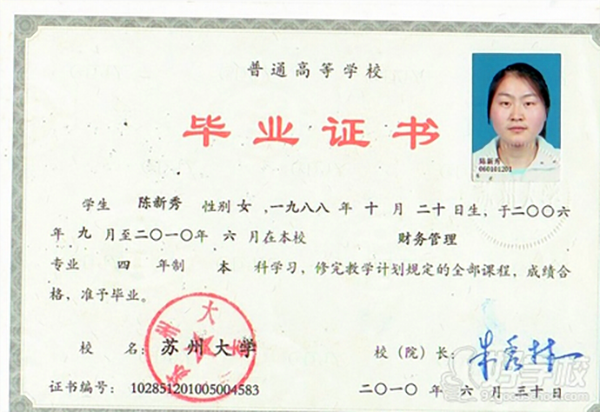 普通高等学校
毕业证书
陆新秀
060101201
学生 陈新秀 性别 女 ,一九八八 年 十 月 二十 日生,于二〇〇六
年 九 月至二〇一〇年 六 月在本校 财务管理
专业 四 年制 本 科学习,修完教学计划规定的全部课程,成绩合
格,准予毕业。
校 名: 苏州大学
校(院)长: 朱秀林
证书编号: 102851201005004583
二〇一〇 年 六 月 三十 日